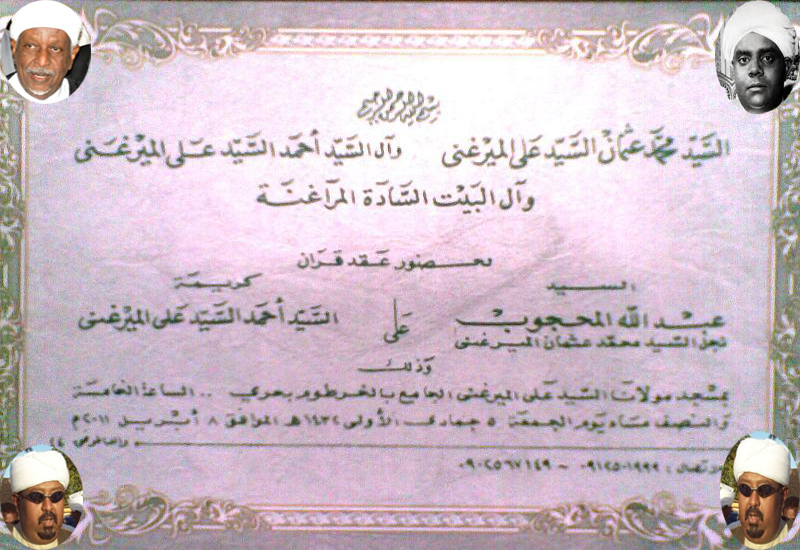 بسم الله الرحمن الرحيم
السَّيِّد محمَّد عثمان السَّيِّد على الميرْغنى وآل السَّيِّد أحمَد السَّيِّد عَلى الميرْغَنى
وآل البَيْت السَّادَة المرَاغنَة
لحضور عَقد قرَان
السيد كريمة
عبد الله المحجوب على السَّيِّد أحمَد السَّيِّد عَلى الميرغنى
نجل السَّيد محمّد عثمان الميرغنى
وَذلك
بمسْجد مولانا السَّيد عَلى الميرغنى الجَامع بالخرطوم بحري .. السَاعة الخَامسة
والنصف مسَاء يَوم الجمعَة ٥ جمادى الأولى ١٤٣٢هـ الموَافق ٨ أبْريل ٢٠١١م
٠٩١٢٥٠١٩٩٩ ~ ٠٩٠٢٥٦٧١٤٩